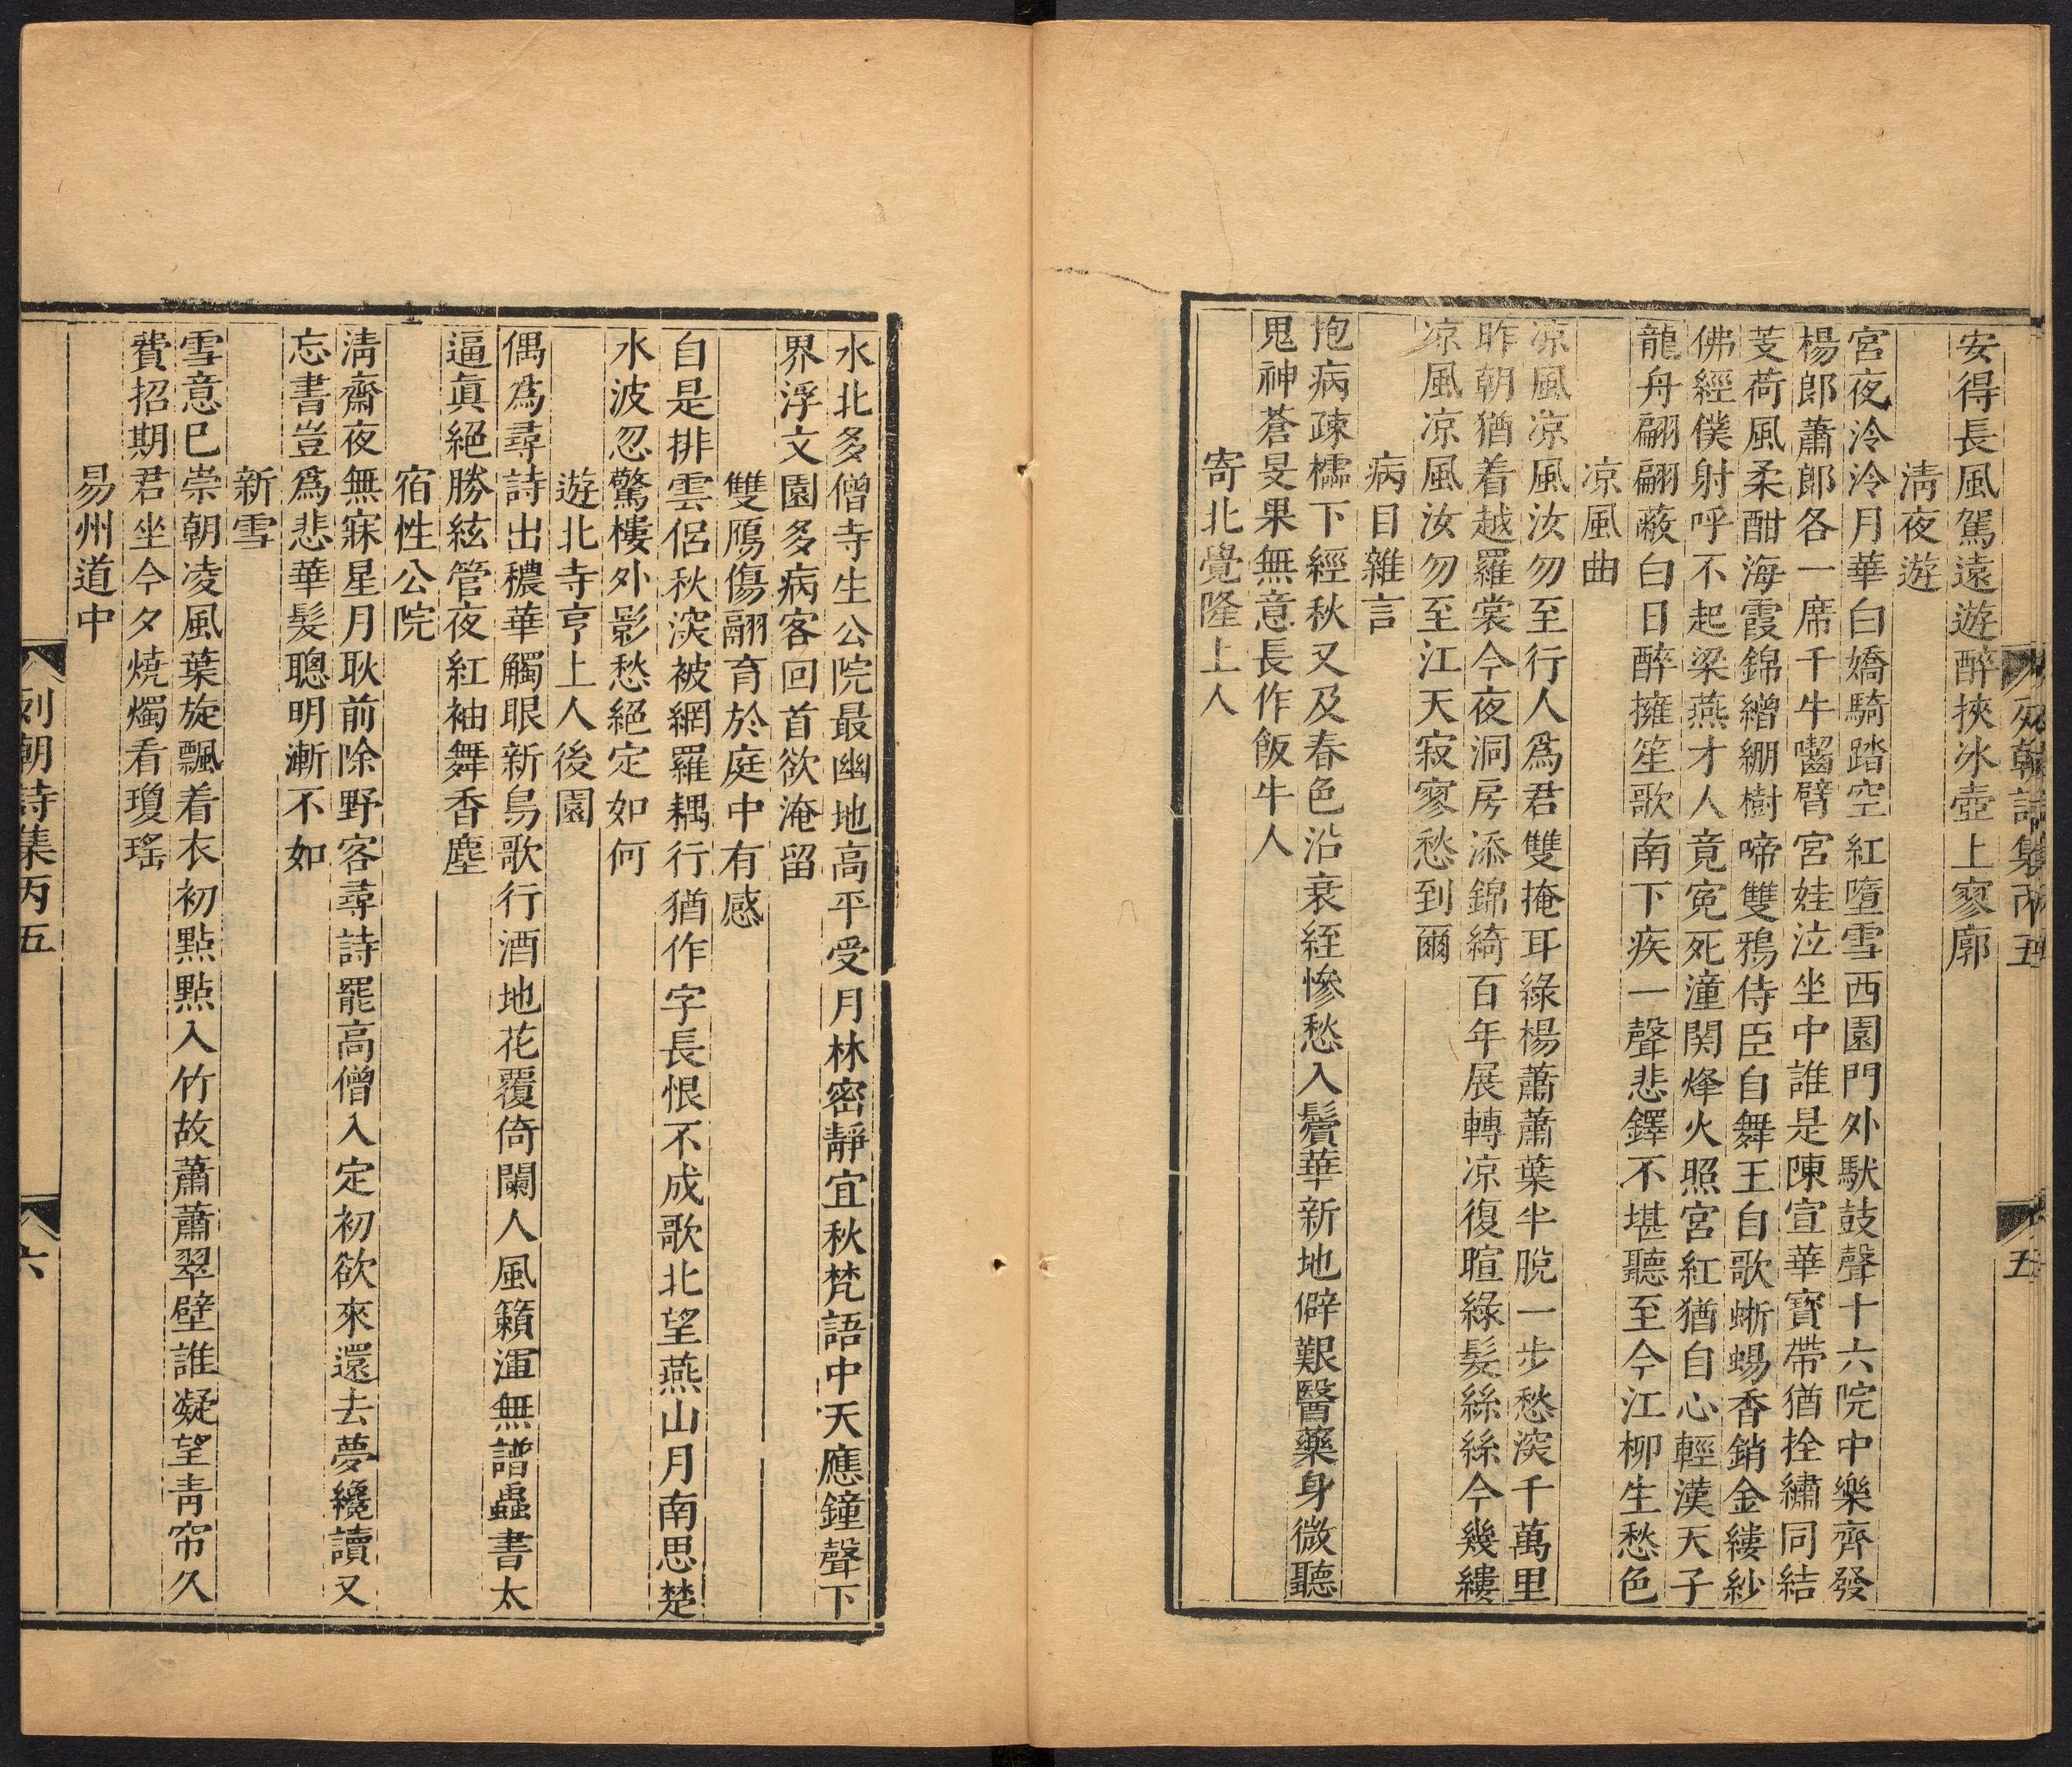 列朝詩集丙五
五
安得長風駕遠遊醉挾冰壺上寥廓
淸夜遊
宮夜泠泠月華白嬌騎踏空紅墮雪西園門外䭾鼓聲十六院中樂齊發
楊郎蕭郎各一席千牛嚙臂宮娃泣坐中誰是陳宣華寳帶猶拴繡同結
芰荷風柔酣海霞錦繒綳樹啼雙鴉侍臣自舞王自歌蜥蜴香銷金縷紗
佛經僕射呼不起梁燕才人竟寃死潼関烽火照宮紅猶自心輕漢天子
龍舟翩翩蔽白日醉擁笙歌南下疾一聲悲鐸不堪聽至今江柳生愁色
凉風曲
凉風凉風汝勿至行人爲君雙掩耳綠楊蕭蕭葉半脫一步愁深千萬里
昨朝猶着越羅裳今夜洞房添錦綺百年展轉凉復暄綠髮絲絲今幾縷
凉風凉風汝勿至江天寂寥愁到爾
病目雜言
抱病疎櫺下經秋又及春色沿衰絰慘愁入鬢華新地僻艱醫藥身微聽
鬼神蒼旻果無意長作飯牛人
寄北覺隆上人
水北多僧寺生公院最幽地高平受月林密靜宜秋梵語中天應鐘聲下
界浮文園多病客回首欲淹留
雙鴈傷翮育於庭中有感
自是排雲侶秋深被網羅耦行猶作字長恨不成歌北望燕山月南思楚
水波忽驚樓外影愁絕定如何
遊北寺亨上人後園
偶爲尋詩出穠華觸眼新鳥歌行酒地花覆倚闌人風籟渾無譜蟲書太
逼眞絕勝絃管夜紅袖舞香塵
宿性公院
淸齋夜無寐星月耿前除野客尋詩罷高僧入定初欲來還去夢纔讀又
忘書豈爲悲華髮聰明漸不如
新雪
雪意已崇朝凌風葉旋飄着衣初點點入竹故蕭蕭翠壁誰凝望靑帘久
費招期君坐今夕燒燭看瓊瑤
易州道中
列朝詩集丙五
六